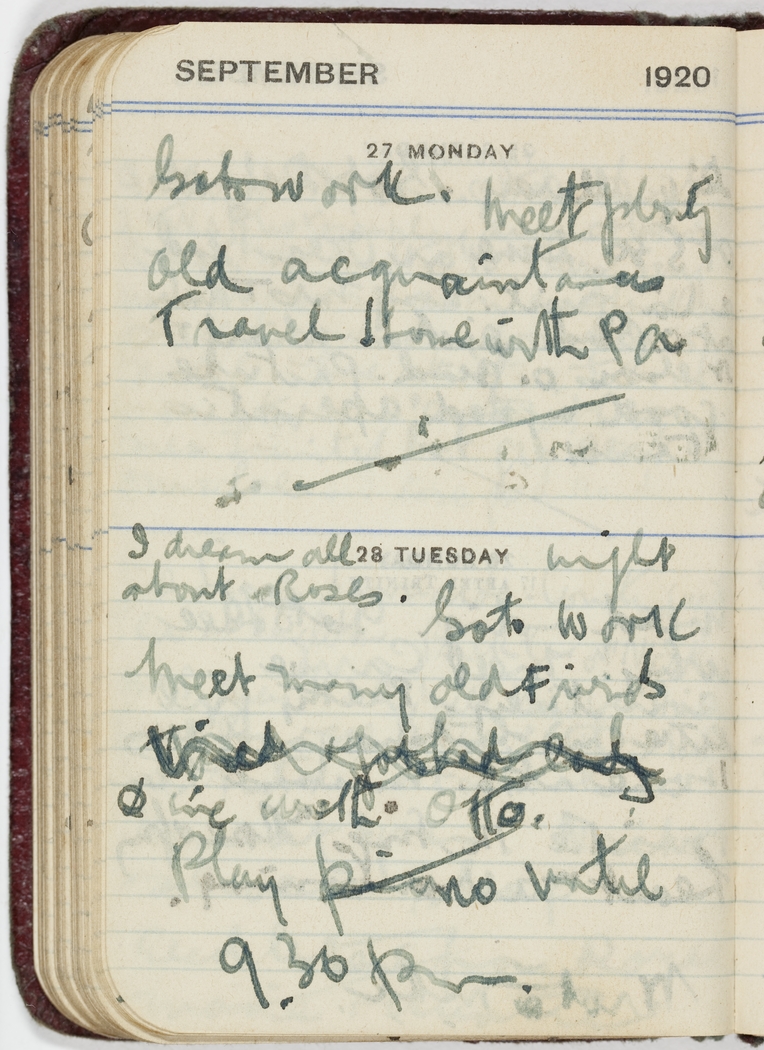 SEPTEMBER 1920
27 MONDAY
Go to work. Meet plenty
old acquaintances
Travel Home with Pa
28 TUESDAY
I dream all night
about Roses.
Go to work
Meet many old Friends
Tired + go to bed early
Dine with Otto.
Play piano until
9.30 pm.